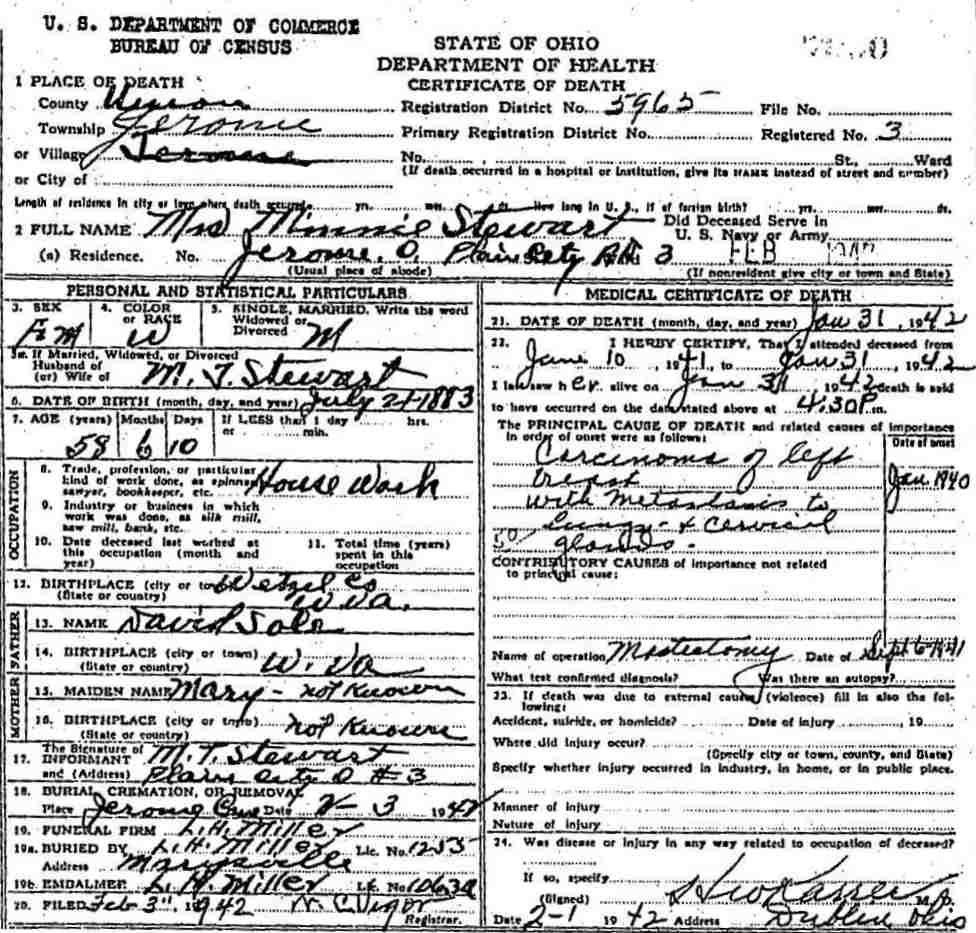 U. S. DEPARTMENT OF COMMERCE
BUREAU OF CENSUS
STATE OF OHIO
DEPARTMENT OF HEALTH
CERTIFICATE OF DEATH
1 PLACE OF DEATH
County Union
Registration District No. 5965 File No.
Township Jerome
Primary Registration District No. Registered No. 3
or Village Jerome
No. , St., Ward
or City of
(If death occurred in a hospital or institution, give its NAME instead of street and number)
Length of residence in city or town where death occurred yrs. mos. ds. How long in U. S., if of foreign birth? yrs. mos. ds.
2 FULL NAME Mrs Minnie Stewart
Did Deceased Serve in
U. S. Navy or Army
(a) Residence. No. Jerome. O. Plain City RR. 3
FEB
(Usual place of abode)
(If nonresident give city or town and State)
PERSONAL AND STATISTICAL PARTICULARS
3. SEX
Fm
4. COLOR
or RACE
W
5. SINGLE, MARRIED. Write the word
Widowed or
Divorced M
5a. If Married, Widowed, or Divorced
Husband of
(or) Wife of M. T. Stewart
6. DATE OF BIRTH (month, day, and year) July 21-1883
7. AGE (years) Months Days If LESS than 1 day hrs.
or min.
58 6 10
OCCUPATION
8. Trade, profession, or particular
kind of work done, as spinner
sawyer, bookkeeper, etc. House Work
9. Industry or business in which
work was done, as silk mill,
saw mill, bank, etc.
10. Date deceased last worked at
this occupation (month and
year)
11. Total time (years)
spent in this
occupation
12. BIRTHPLACE (city or town) Wetzel Co
(State or country) W Va.
FATHER
13. NAME David
14. BIRTHPLACE (city or town)
(State or country) W. Va
MOTHER
15. MAIDEN NAME Mary - not Known
16. BIRTHPLACE (city or town)
(State or country) not Known
17. The Signature of
INFORMANT M. T. Stewart
and (Address) Plain City O #3
18. BURIAL, CREMATION, OR REMOVAL
Place Jerome Date 2-3 1942
19. FUNERAL FIRM L. H. Miller
19a. BURIED BY L. H. Miller Lic. No. 1255
Address Marysville
19b. EMBALMER L. H. Miller Lic. No.
20. FILED Feb 3" 1942
Registrar.
MEDICAL CERTIFICATE OF DEATH
21. DATE OF DEATH (month, day, and year) Jan 31, 1942
22. I HERBY CERTIFY, That I attended deceased from
June 10, 1941, to Jan 31, 1942
I last saw her alive on Jan 31 1942 death is said
to have occurred on the date stated above at 4:30P m.
The PRINCIPAL CAUSE OF DEATH and related causes of importance
in order of onset were as follows:
Date of onset
Carcinoma of left
breast
Jan 1940
with metastasis to
lungs - & cervical
50
glands.
CONTRIBUTORY CAUSES of importance not related
to principal cause:
Name of operation Mastectomy Date of Sept 6-1941
What test confirmed diagnosis? Was there an autopsy?
23. If death was due to external cause (violence) fill in also the following:
Accident, suicide, or homicide? Date of injury , 19
Where did injury occur?
(Specify city or town, county, and State)
Specify whether injury occurred in industry, in home, or in public place.
Manner of injury
Nature of injury
24. Was disease or injury in any way related to occupation of deceased?
If so, specify
(Signed) M. D.
Date 2-1 1942 Address Dublin Ohio